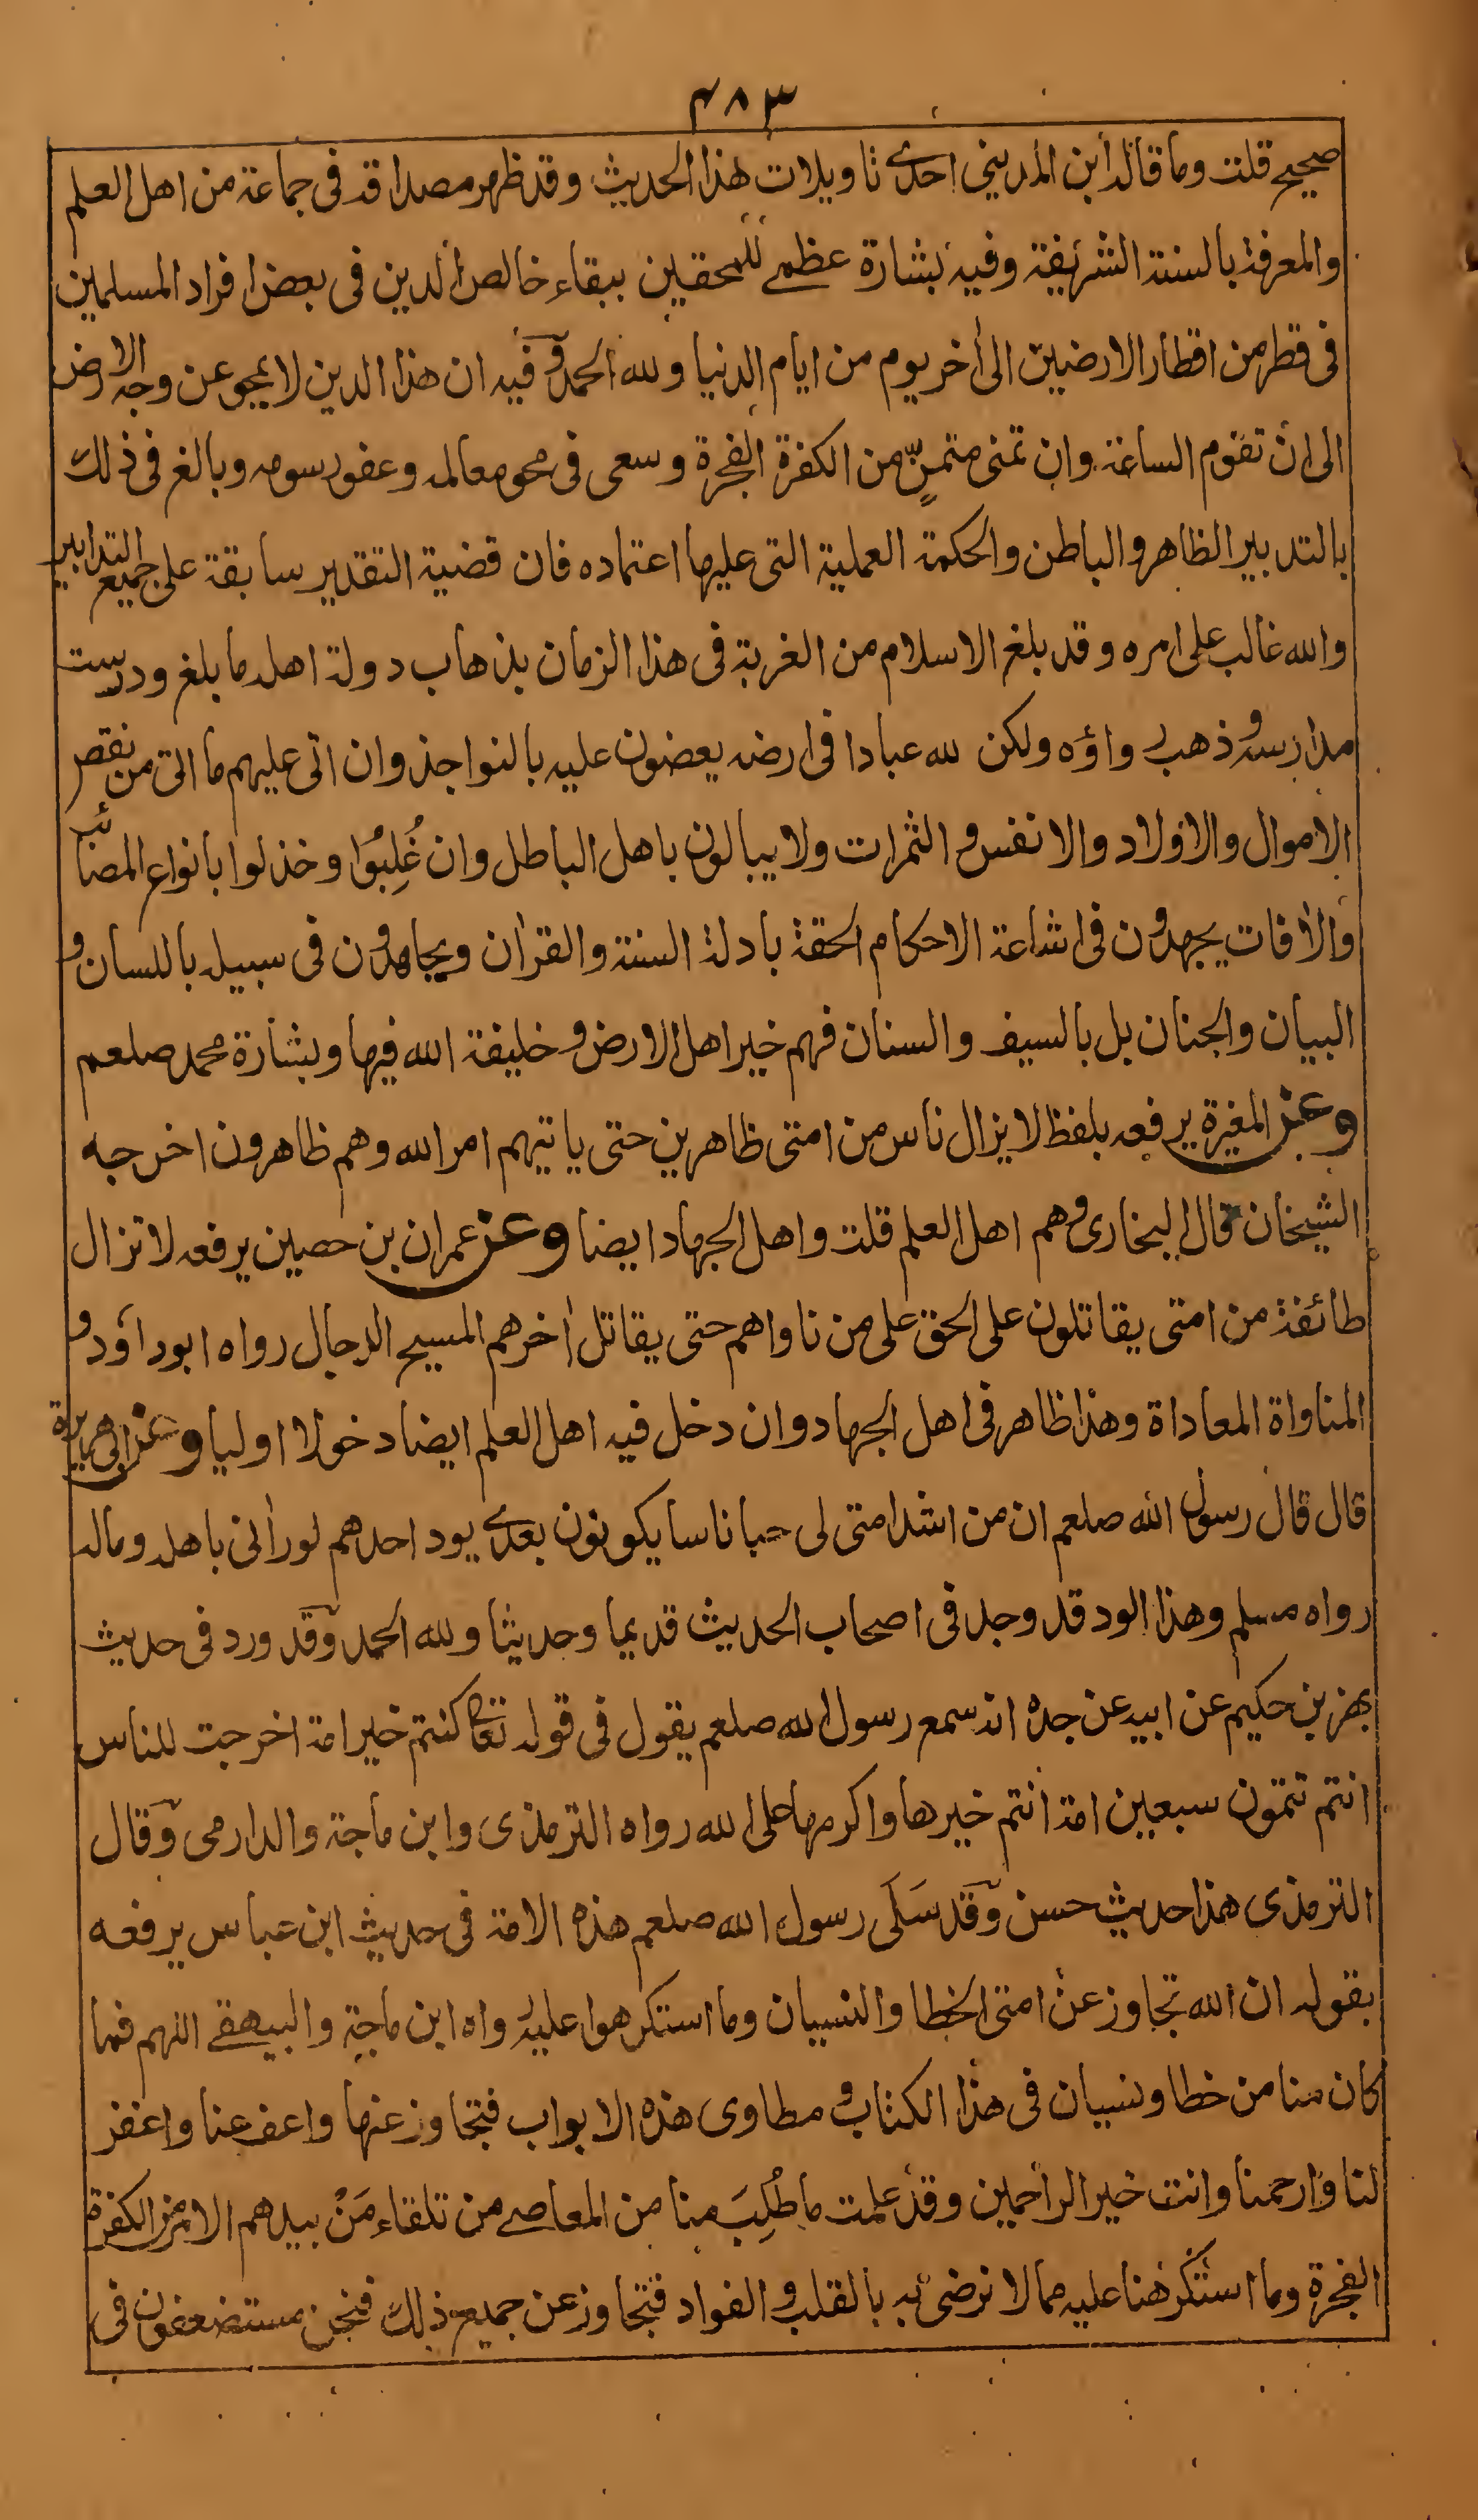 ٤٨٣
صحيح قلت وما قاله ابن المديني احدى تاويلات هذا الحديث وقد ظهر مصداقه فى جماعة من اهل العلم
والمعرفة بالسنة الشريفة وفيه بشارة عظمى للمحقين ببقاء خالص الدين فى بعض افراد المسلمين
فى قطر من اقطار الارضين الى أخر يوم من ايام الدنيا ولله الحمد وفيه ان هذا الدين لا يمحو عن وجه الارض
الى ان تقوم الساعة وان تمنى متمنٍّ من الكفرة الفجرة وسعى فى محو معالمه وعفو رسومه وبالغ فى ذلك
بالتدبير الظاهر والباطن والحكمة العملية التى عليها اعتماده فان قضية التقدير سابقة على جميع التدابير
والله غالب على امره وقد بلغ الاسلام من الغربة فى هذا الزمان بذهاب دولة اهله ما بلغ ودرست
مدارسه وذهب رواؤه ولكن لله عبادا فى ارضه يعضون عليه بالنواجذ وان اتى عليهم ما اتى من نقص
الاموال والاولاد والانفس والثمرات ولا يبالون باهل الباطل وان غُلِبُوا وخذلوا بانواع المصائب
والأفات يجهدون فى اشاعة الاحكام الحقة بادلة السنة والقرأن ويجاهدون فى سبيله باللسان و
البيان والجنان بل بالسيف والسنان فهم خير اهل الارض وخليفة الله فيها وبشارة محمد صلعم
وعن المغيرة يرفعه بلفظ لا يزال ناس من امتى ظاهرين حتى ياتيهم امر الله وهم ظاهرون اخرجه
الشيخان قال البخارى وهم اهل العلم قلت واهل الجهاد ايضا وعن عمران بن حصين يرفعه لا تزال
طائفة من امتى يقاتلون على الحق على من ناواهم حتى يقاتل أخرهم المسيح الدجال رواه ابو داؤد و
المناواة المعاداة وهذا ظاهر فى اهل الجهاد وان دخل فيه اهل العلم ايضا دخولا اوليا وعن ابى هريرة
قال قال رسول الله صلعم ان من اشد امتى لى حبا ناسا يكونون بعدى يود احدهم لو رأنى باهله وماله
رواه مسلم وهذا الود قد وجد فى اصحاب الحديث قديما وحديثا ولله الحمد وقد ورد فى حديث
بهز بن حكيم عن ابيه عن جده انه سمع رسول الله صلعم يقول فى قوله تعا كنتم خير امة اخرجت للناس
انتم تتمون سبعين امة انتم خيرها واكرمها على الله رواه الترمذى وابن ماجة والدارمى وقال
الترمذى هذا حديث حسن وقد سَلَّى رسول الله صلعم هذه الامة فى حديث ابن عباس يرفعه
بقوله ان الله تجاوز عن امتى الخطا والنسيان وما استكرهوا عليه رواه ابن ماجة والبيهقى اللهم فما
كان منا من خطا ونسيان فى هذا الكتاب ومطاوى هذه الابواب فتجاوز عنها واعف عنا واغفر
لنا وارحمنا وانت خير الراحمين وقد علمت ما طُلِبَ منا من المعاصى من تلقاء مَنْ بيدهم الامر من الكفرة
الفجرة وما استُكرهنا عليه مما لا نرضى به بالقلب والفواد فتجاوز عن جميع ذلك فنحن مستضعفون فى